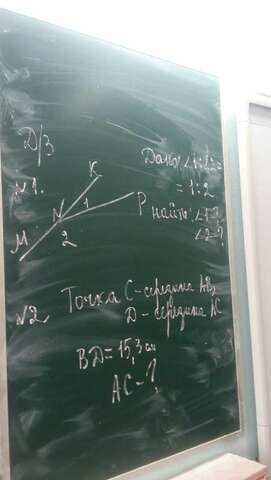 Д/З
№1.
K
N 1 P
M 2
Дано: ∠1:∠2=
=1:2
найти: ∠1-?
∠2-?
№2 Точка C-середина AB,
D-середина AC
BD=15,3 см
AC-?